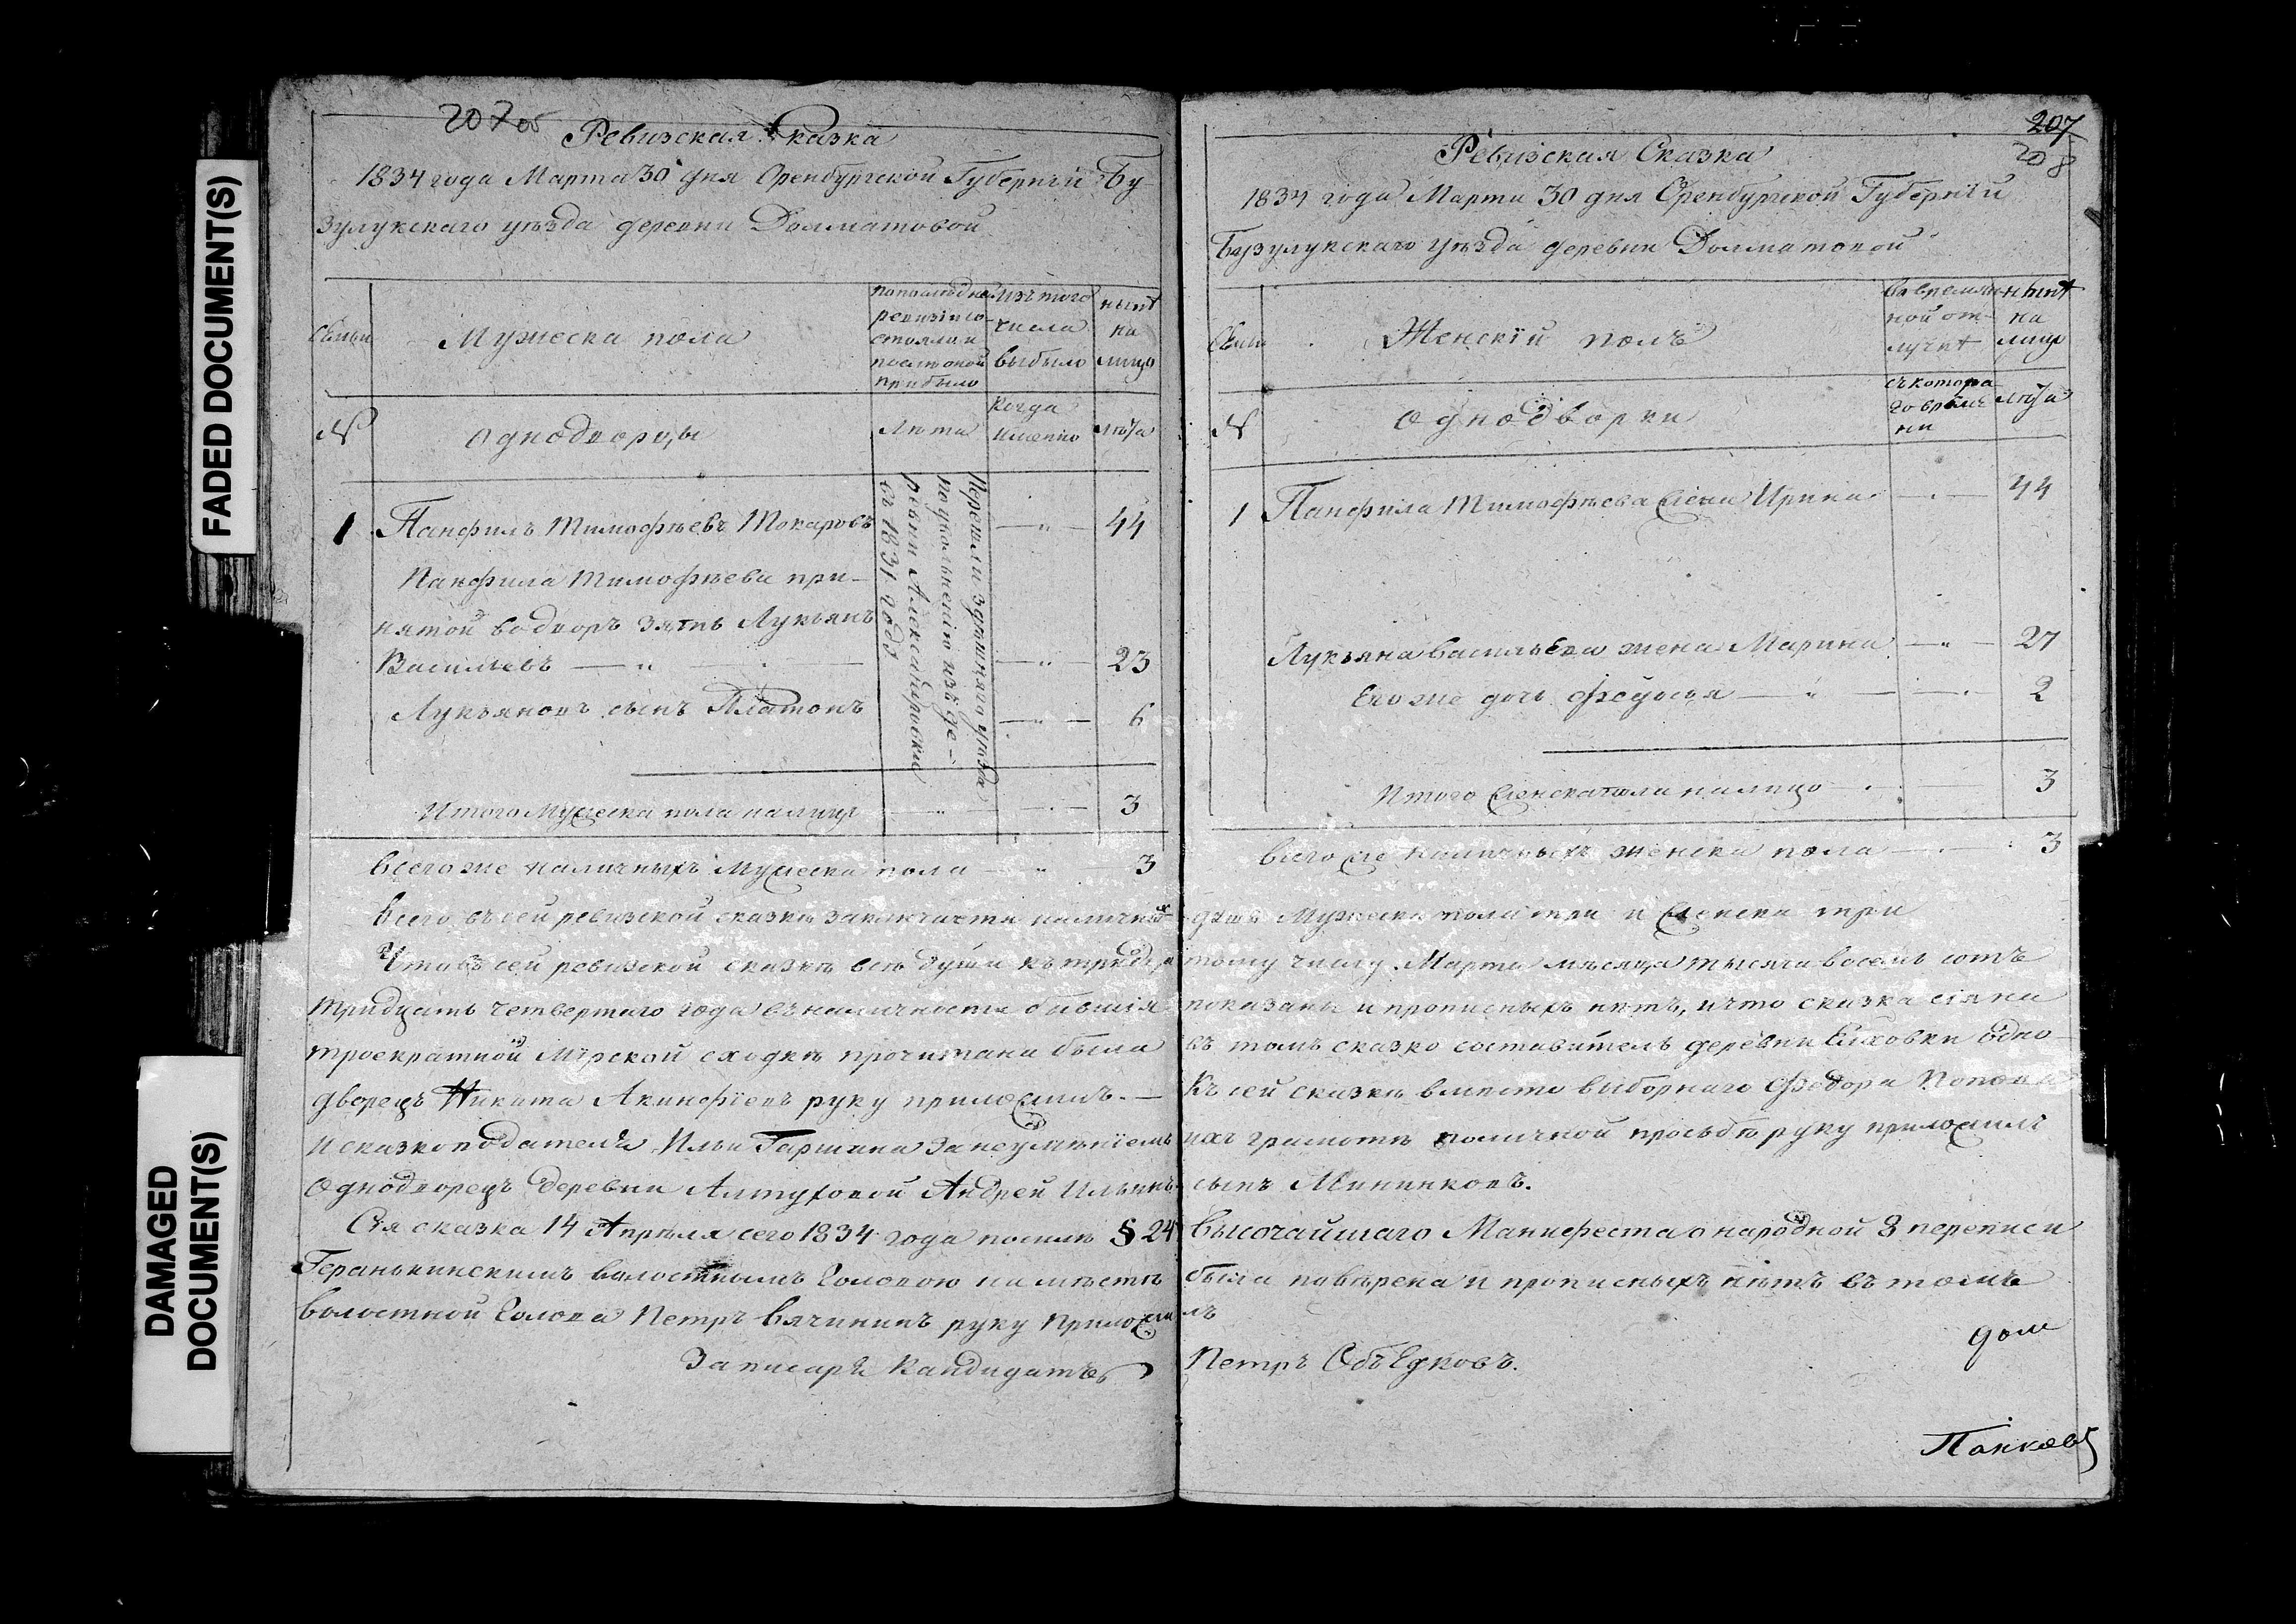 FADED DOCUMENT(S)
DAMAGED
DOCUMENT(S)
207 об
Ревизская Сказка
1834 года Марта 30 дня Оренбургской Губернїи Бу-
зулукскаго уѣзда деревни Долматовой
Семьи
Мужеска пола
по последней ревизiи состояло и после оной прибыло
изъ того числа выбыло
нынѣ на лицо
№
однодворцы
Лѣта
Когда именно
лѣта
1 Панфилъ Тимофѣевъ Токаровъ —"— 44
Панфила Тимофѣева при-
нятой во дворъ зять Лукьянъ
Васильевъ —"— —"— 23
Лукьяновъ сынъ Платонъ —"— 6
Перешли здѣшняго уѣзда
по
изъ де-
ревни Александровки
съ 1831 года
Итого Мужеска пола налицо 3
Всего же наличныхъ Мужеска пола 3
Всего въ сей ревизской сказкѣ заключается наличныхъ
Что въ сей ревизской сказкѣ всѣ души къ
тридцать четвертаго года въ наличности бывшiя
троекратной Мiрской сходкѣ прочитана была
дворецъ Никита Акинфїевъ руку приложилъ. —
и сказкоподателя Ильи Гаршина за неумѣнїемъ
Однодворецъ деревни Алтуховой Андрей Ильинъ
Сiя сказка 14 Апрѣля сего 1834 года по силѣ § 24
Геранькинскимъ волостнымъ Головою на мѣстѣ
волостной Голова Петръ Вячининъ руку приложи
За писаря Кандидатъ
207
208
Ревизская Сказка
1834 года Марта 30 дня Оренбургской Губернїи
Бузулукскаго уѣзда деревни Долматовой
Семьи
Женскїй полъ
во временной отлучкѣ
нынѣ на лицо
№
однодворки
съ котораго времени
лѣта
1 Панфила Тимофѣева жена Ирина — 44
Лукьяна Васильева жена Марина —"— 27
Его же дочь Федосья —"— 2
Итого женска пола налицо 3
Всего же наличныхъ женска пола 3
душъ Мужеска пола три и женска три
тому числу Марта мѣсяца тысяча восемь сотъ
показаны и прописныхъ нѣтъ, и что сказка сiя на
въ томъ сказко составитель деревни Елховки одно
Къ сей сказкѣ вмѣсто выборнаго Федора Попова
ихъ грамотѣ по личной прозьбѣ руку приложилъ
сынъ Мининковъ.
Высочайшаго Манифеста о народной 8 переписи
была повѣрена и прописныхъ нѣтъ въ томъ
лъ
Петръ Объедковъ.
Панковъ